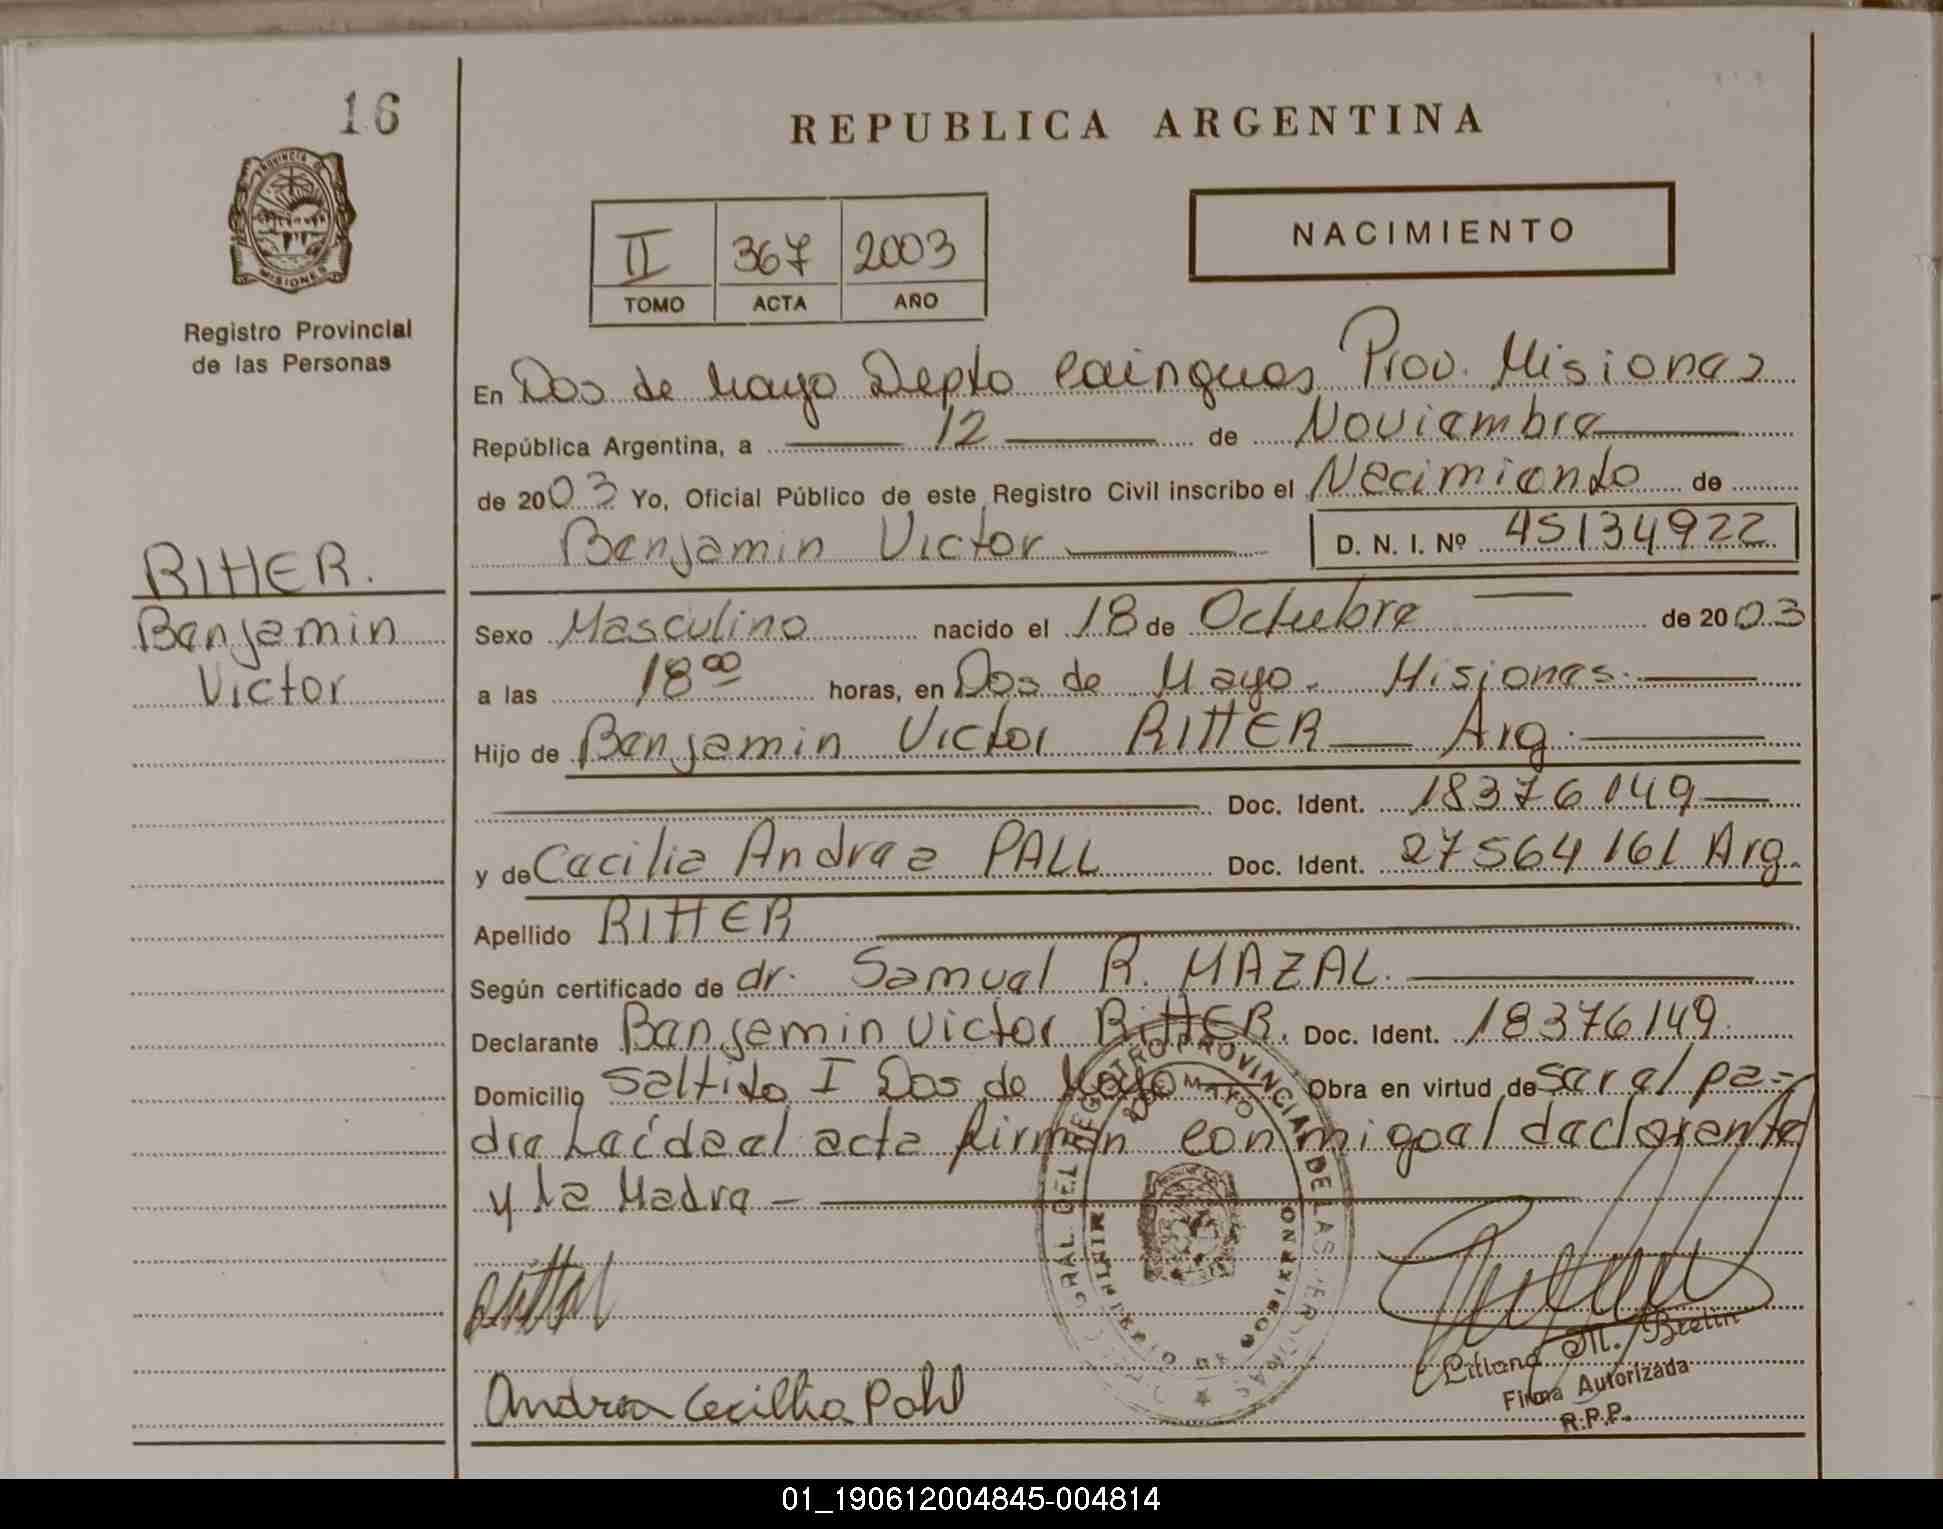 16
REPUBLICA ARGENTINA
PROVINCIA DE
MISIONES
Registro Provincial
de las Personas
II 367 2003
TOMO ACTA AÑO
NACIMIENTO
En Dos de Mayo Depto Cainguas Prov. Misiones
República Argentina, a 12 de Noviembre
de 2003 Yo, Oficial Público de este Registro Civil inscribo el Nacimiento de
Benjamin Victor D. N. I. Nº 45134922
RITTER.
Benjamin
Victor
Sexo Masculino nacido el 18 de Octubre de 2003
a las 18 00 horas, en Dos de Mayo - Misiones.
Hijo de Benjamin Victor RITTER Arg.
Doc. Ident. 18376149
y de Cecilia Andrea PALL Doc. Ident. 27564161 Arg.
Apellido RITTER
Según certificado de dr. Samuel R. MAZAL.
Declarante Benjamin Victor RITTER. Doc. Ident. 18376149
Domicilio Saltito I Dos de Mayo Obra en virtud de ser el pa-
dre Leída el acta firman conmigo el declarante
y la Madre
REGISTRO PROVINCIAL DE LAS PERSONAS
MINISTERIO DE GOBIERNO
Andrea Cecilia Pahl
Liliana M. Bretin
Firma Autorizada
R.P.P.
01_190612004845-004814